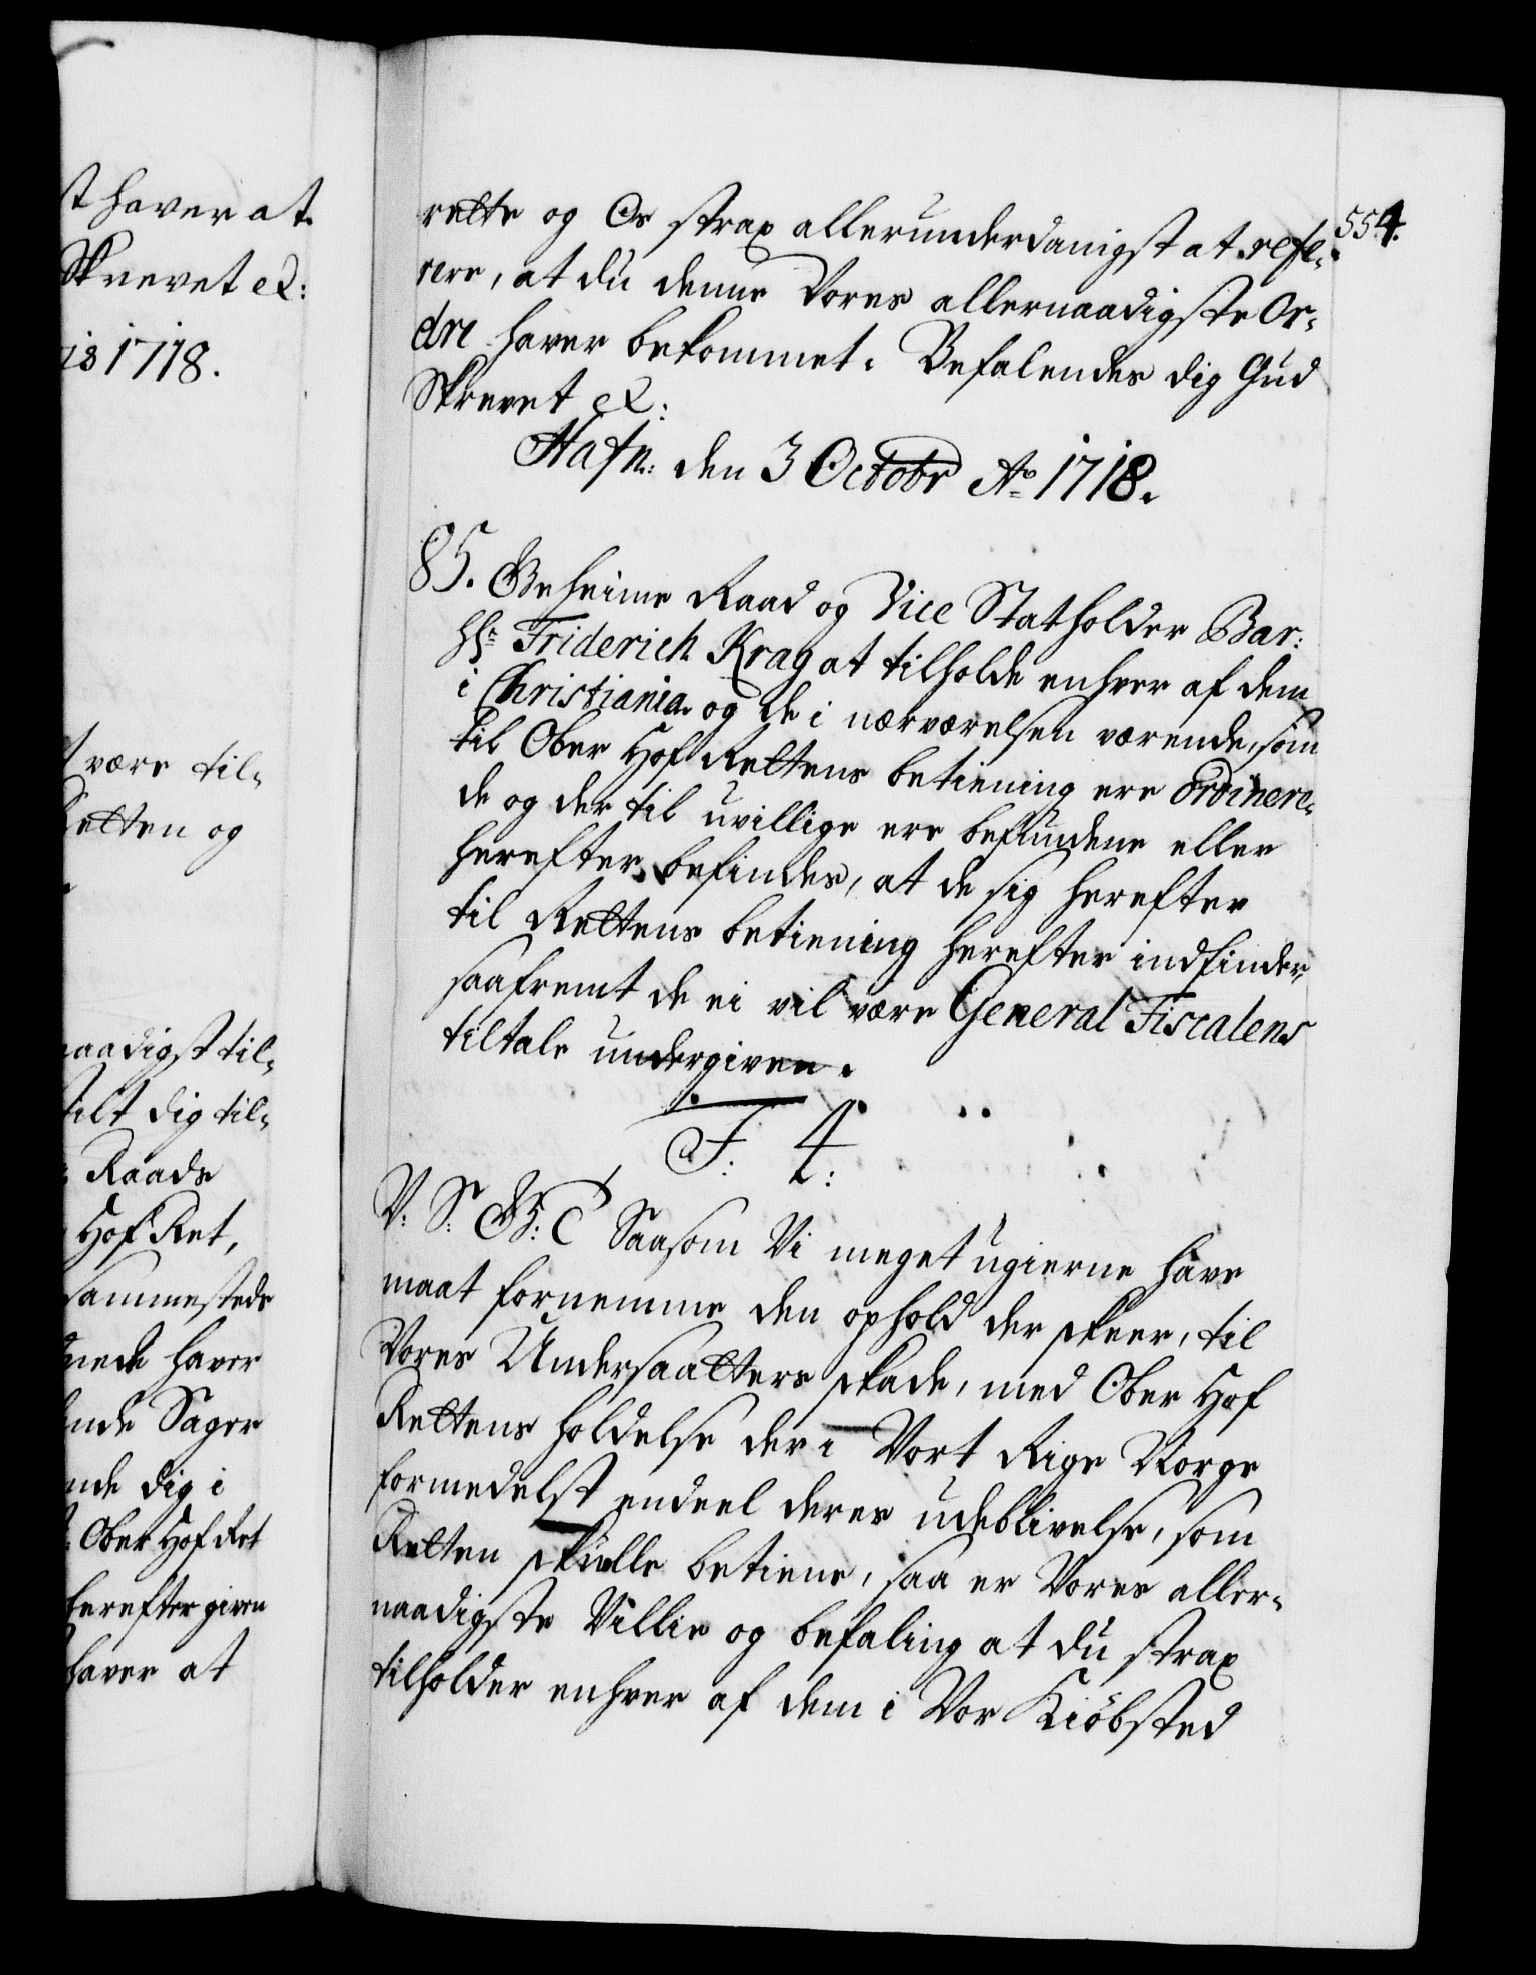 t haver at
Skrevet etc:
is 1718.
t være til-
Retten og
naadigst til-
dig til-
Raads
Hof Ret,
sammesteds
mede haver
ende Sager
nde dig i
Ober Hof Ret
herefter given
haver at
554.
rette og Os strax allerunderdanigst at refe-
rere, at du denne Vores allernaadigste Or-
dre haver bekommet. Befalendes dig Gud
Skrevet etc:
Hafn: den 3 Octobr Ao 1718.
85. Geheime Raad og Vice Statholder Bar:
Hr: Friderich Krag at tilholde enhver af dem
i Christiania og de i nærværelsen værende, som
til Ober Hof Rettens betiening ere ordinere-
de og der til uvillige ere befundene eller
herefter befindes, at de sig herefter
til Rettens betiening herefter indfinder,
saafremt de ei vil være General Fiscalens
tiltale undergiven.
F: 4:
V: S: G: T Saasom Vi meget ugierne have
maat fornemme den ophold der skeer, til
Vores Undersaatters skade, med Ober Hof
Rettens holdelse der i Vort Rige Norge
formedelst endeel deres udeblivelse, som
Retten skulle betiene, saa er Vores aller-
naadigste Villie og befaling at du strax
tilholder enhver af dem i Vor Kiøbsted